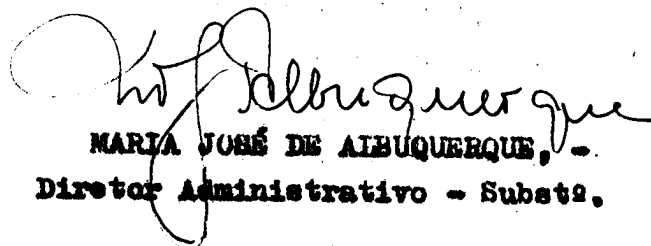 MARIA JOSÉ DE ALBUQUERQUE, -
Diretor Administrativo - Substº.